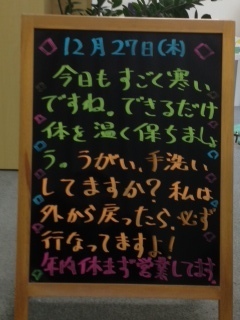 12月27日(木)
今日もすごく寒い
ですね。できるだけ
体を温く保ちましょ
う。うがい、手洗い
してますか?私は
外から戻ったら、必ず
行なってますよ!
年内休まず営業してます。